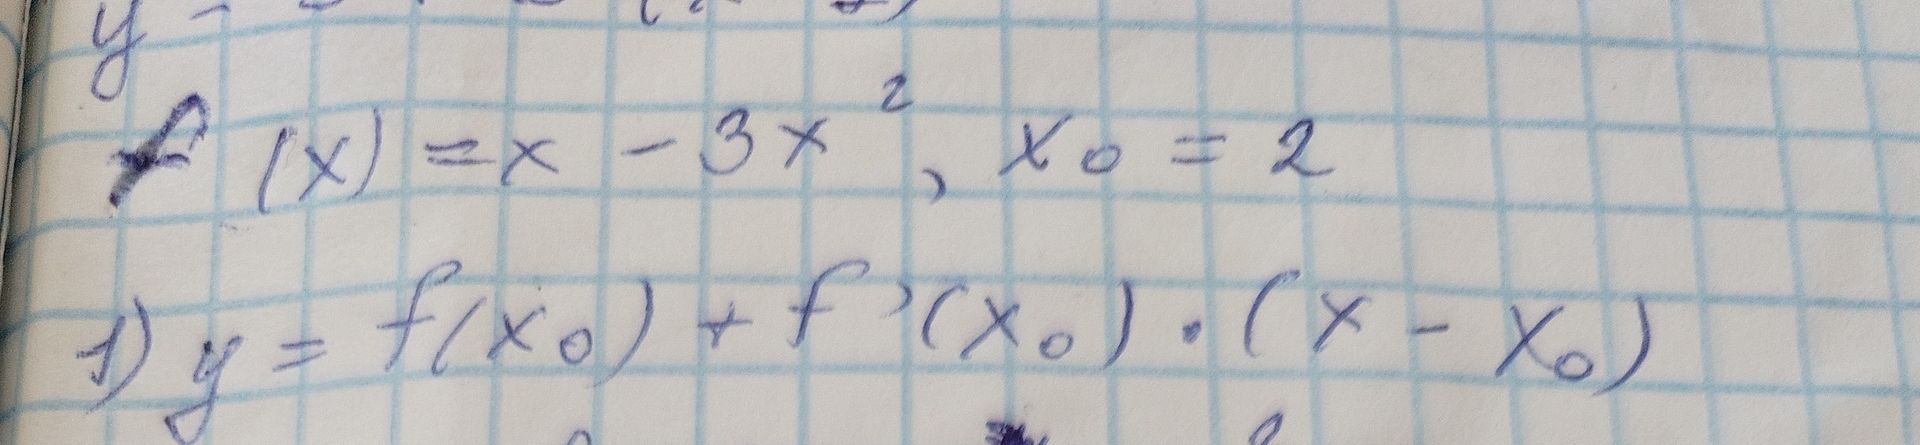 f(x) = x - 3x², x₀ = 2
1) y = f(x₀) + f'(x₀) · (x - x₀)